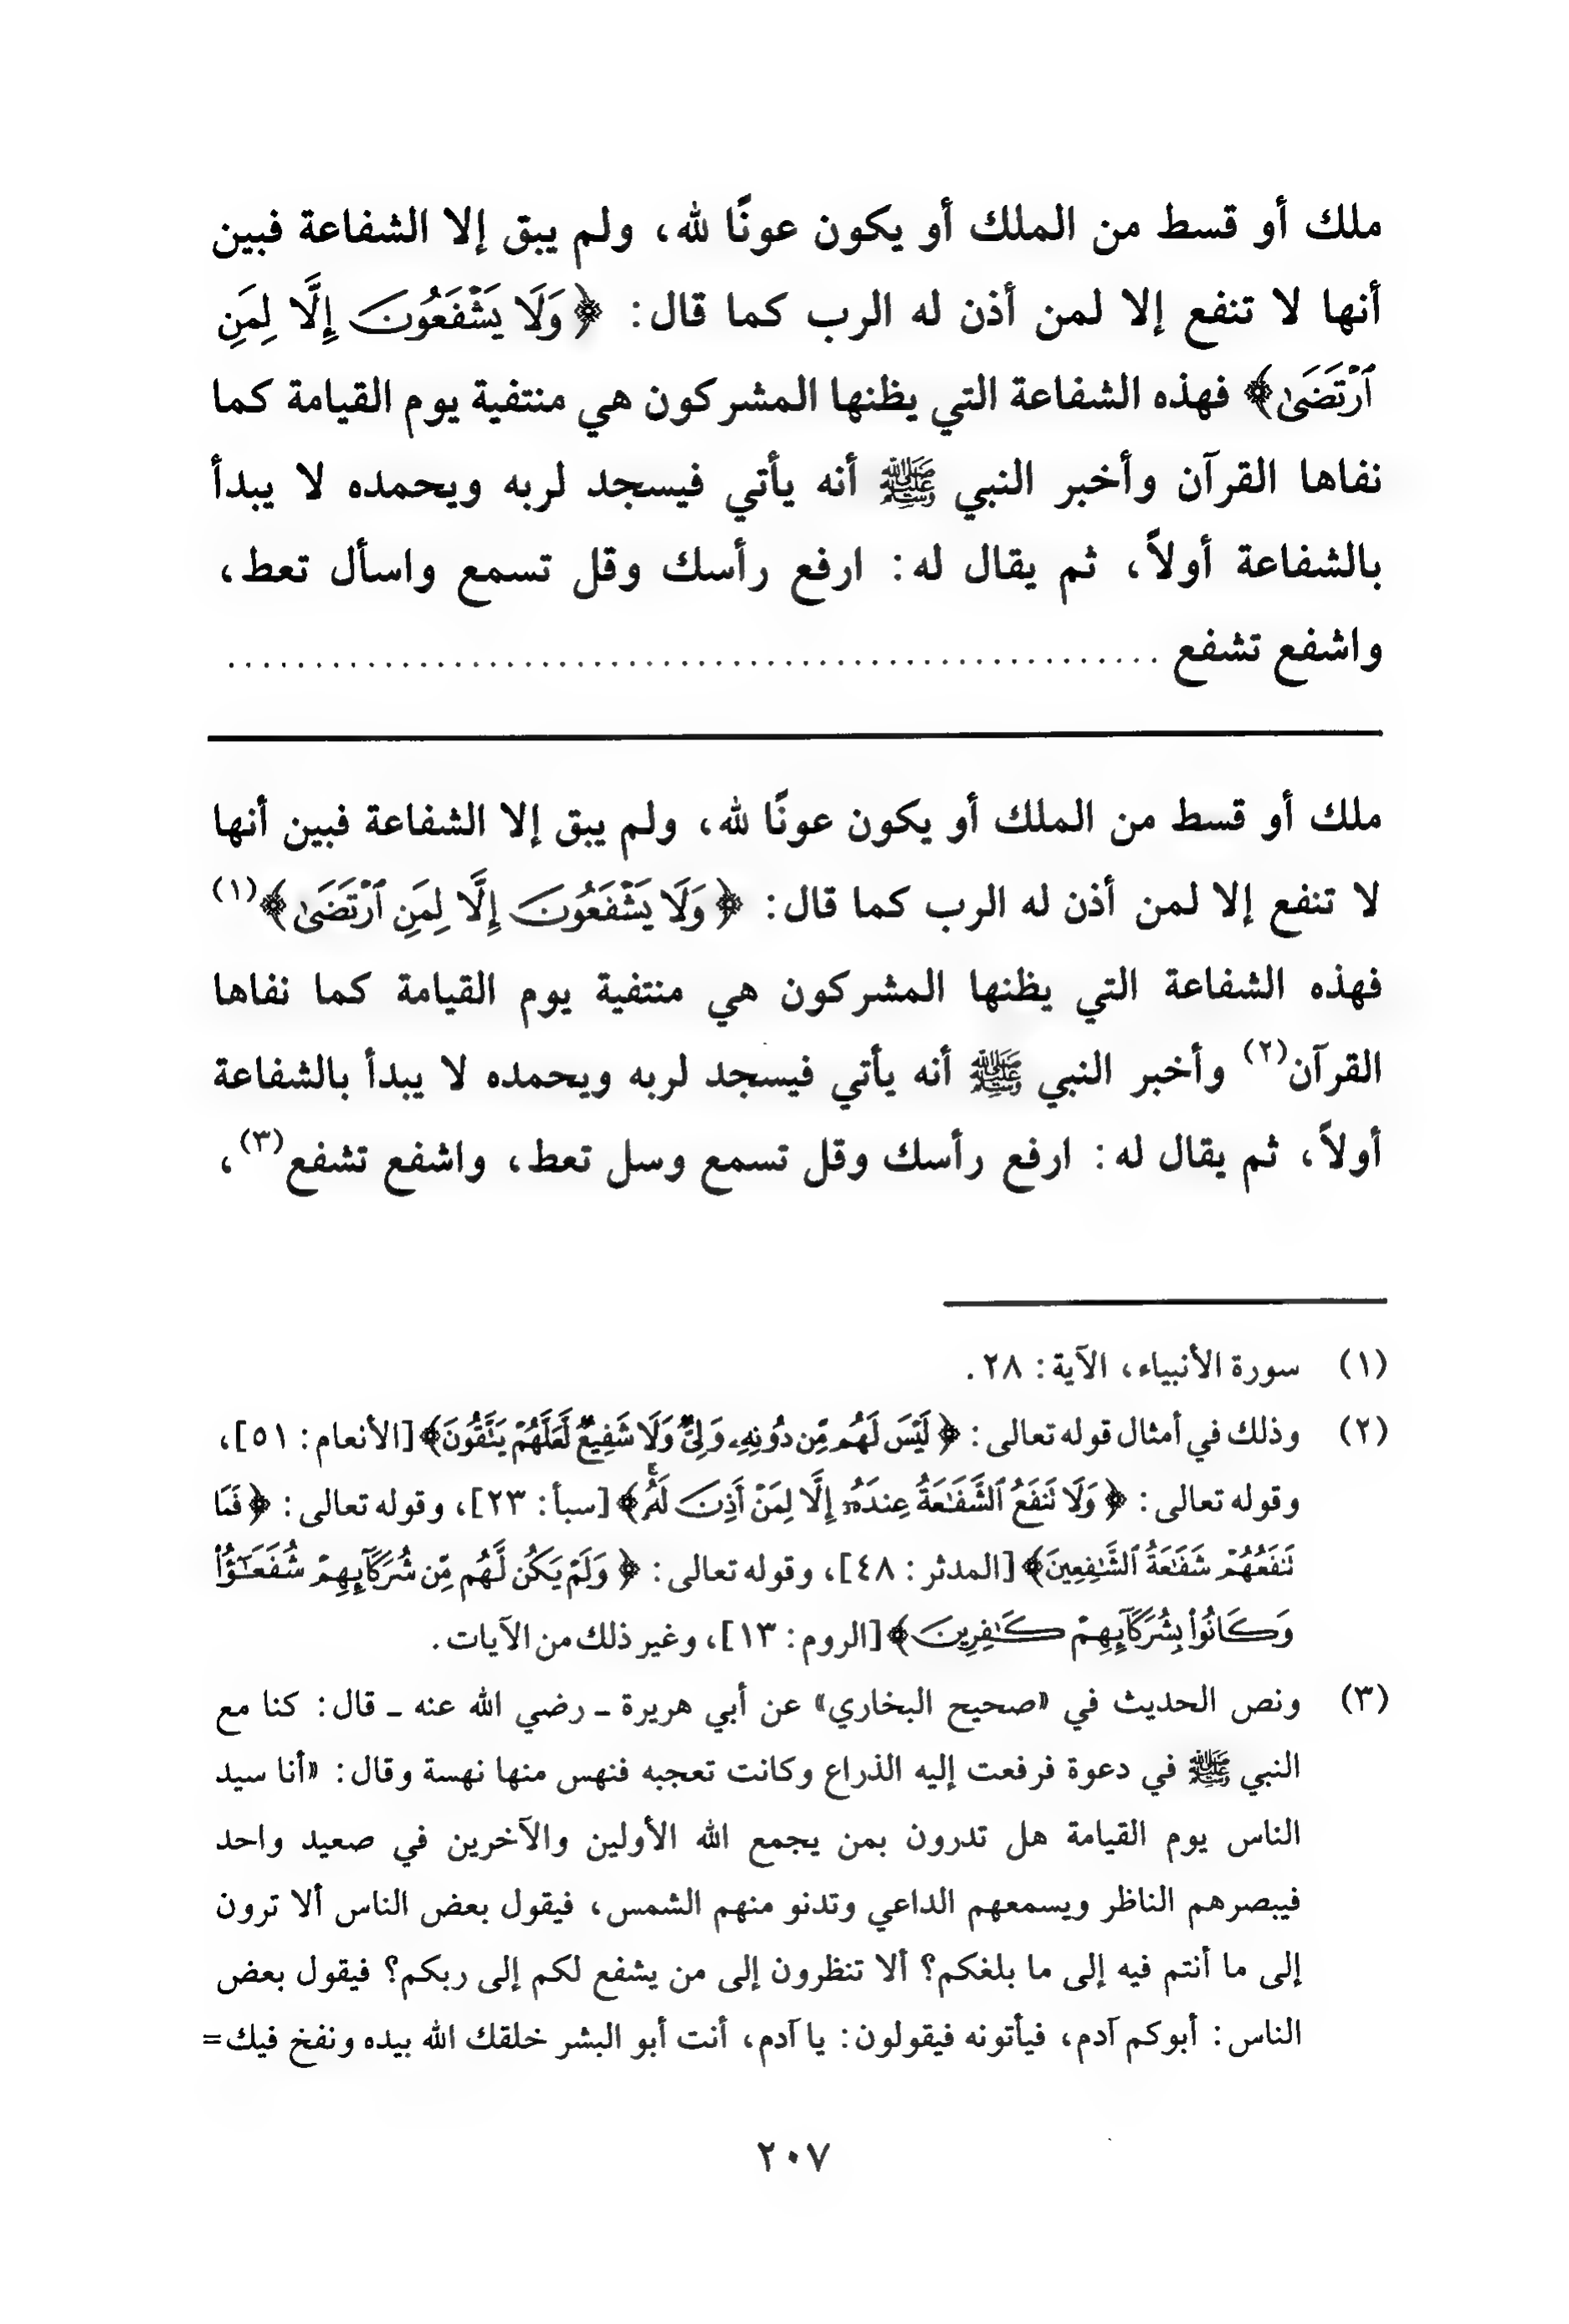 ملك أو قسط من الملك أو يكون عونًا لله، ولم يبق إلا الشفاعة فبين
أنها لا تنفع إلا لمن أذن له الرب كما قال: ﴿وَلَا يَشْفَعُونَ إِلَّا لِمَنِ
ٱرْتَضَىٰ﴾ فهذه الشفاعة التي يظنها المشركون هي منتفية يوم القيامة كما
نفاها القرآن وأخبر النبي ﷺ أنه يأتي فيسجد لربه ويحمده لا يبدأ
بالشفاعة أولاً، ثم يقال له: ارفع رأسك وقل تسمع واسأل تعط،
واشفع تشفع ....................................................
ملك أو قسط من الملك أو يكون عونًا لله، ولم يبق إلا الشفاعة فبين أنها
لا تنفع إلا لمن أذن له الرب كما قال: ﴿وَلَا يَشْفَعُونَ إِلَّا لِمَنِ ٱرْتَضَىٰ﴾(١)
فهذه الشفاعة التي يظنها المشركون هي منتفية يوم القيامة كما نفاها
القرآن(٢) وأخبر النبي ﷺ أنه يأتي فيسجد لربه ويحمده لا يبدأ بالشفاعة
أولاً، ثم يقال له: ارفع رأسك وقل تسمع وسل تعط، واشفع تشفع(٣)،
(١) سورة الأنبياء، الآية: ٢٨.
(٢) وذلك في أمثال قوله تعالى: ﴿لَيْسَ لَهُم مِّن دُونِهِۦ وَلِىٌّ وَلَا شَفِيعٌ لَّعَلَّهُمْ يَتَّقُونَ﴾ [الأنعام: ٥١]،
وقوله تعالى: ﴿وَلَا تَنفَعُ ٱلشَّفَٰعَةُ عِندَهُۥٓ إِلَّا لِمَنْ أَذِنَ لَهُۥۚ﴾ [سبأ: ٢٣]، وقوله تعالى: ﴿فَمَا
تَنفَعُهُمْ شَفَٰعَةُ ٱلشَّٰفِعِينَ﴾ [المدثر: ٤٨]، وقوله تعالى: ﴿وَلَمْ يَكُن لَّهُم مِّن شُرَكَآئِهِمْ شُفَعَٰٓؤُا۟
وَكَانُوا۟ بِشُرَكَآئِهِمْ كَٰفِرِينَ﴾ [الروم: ١٣]، وغير ذلك من الآيات.
(٣) ونص الحديث في «صحيح البخاري» عن أبي هريرة ـ رضي الله عنه ـ قال: كنا مع
النبي ﷺ في دعوة فرفعت إليه الذراع وكانت تعجبه فنهس منها نهسة وقال: «أنا سيد
الناس يوم القيامة هل تدرون بمن يجمع الله الأولين والآخرين في صعيد واحد
فيبصرهم الناظر ويسمعهم الداعي وتدنو منهم الشمس، فيقول بعض الناس ألا ترون
إلى ما أنتم فيه إلى ما بلغكم؟ ألا تنظرون إلى من يشفع لكم إلى ربكم؟ فيقول بعض
الناس: أبوكم آدم، فيأتونه فيقولون: يا آدم، أنت أبو البشر خلقك الله بيده ونفخ فيك=
٢٠٧